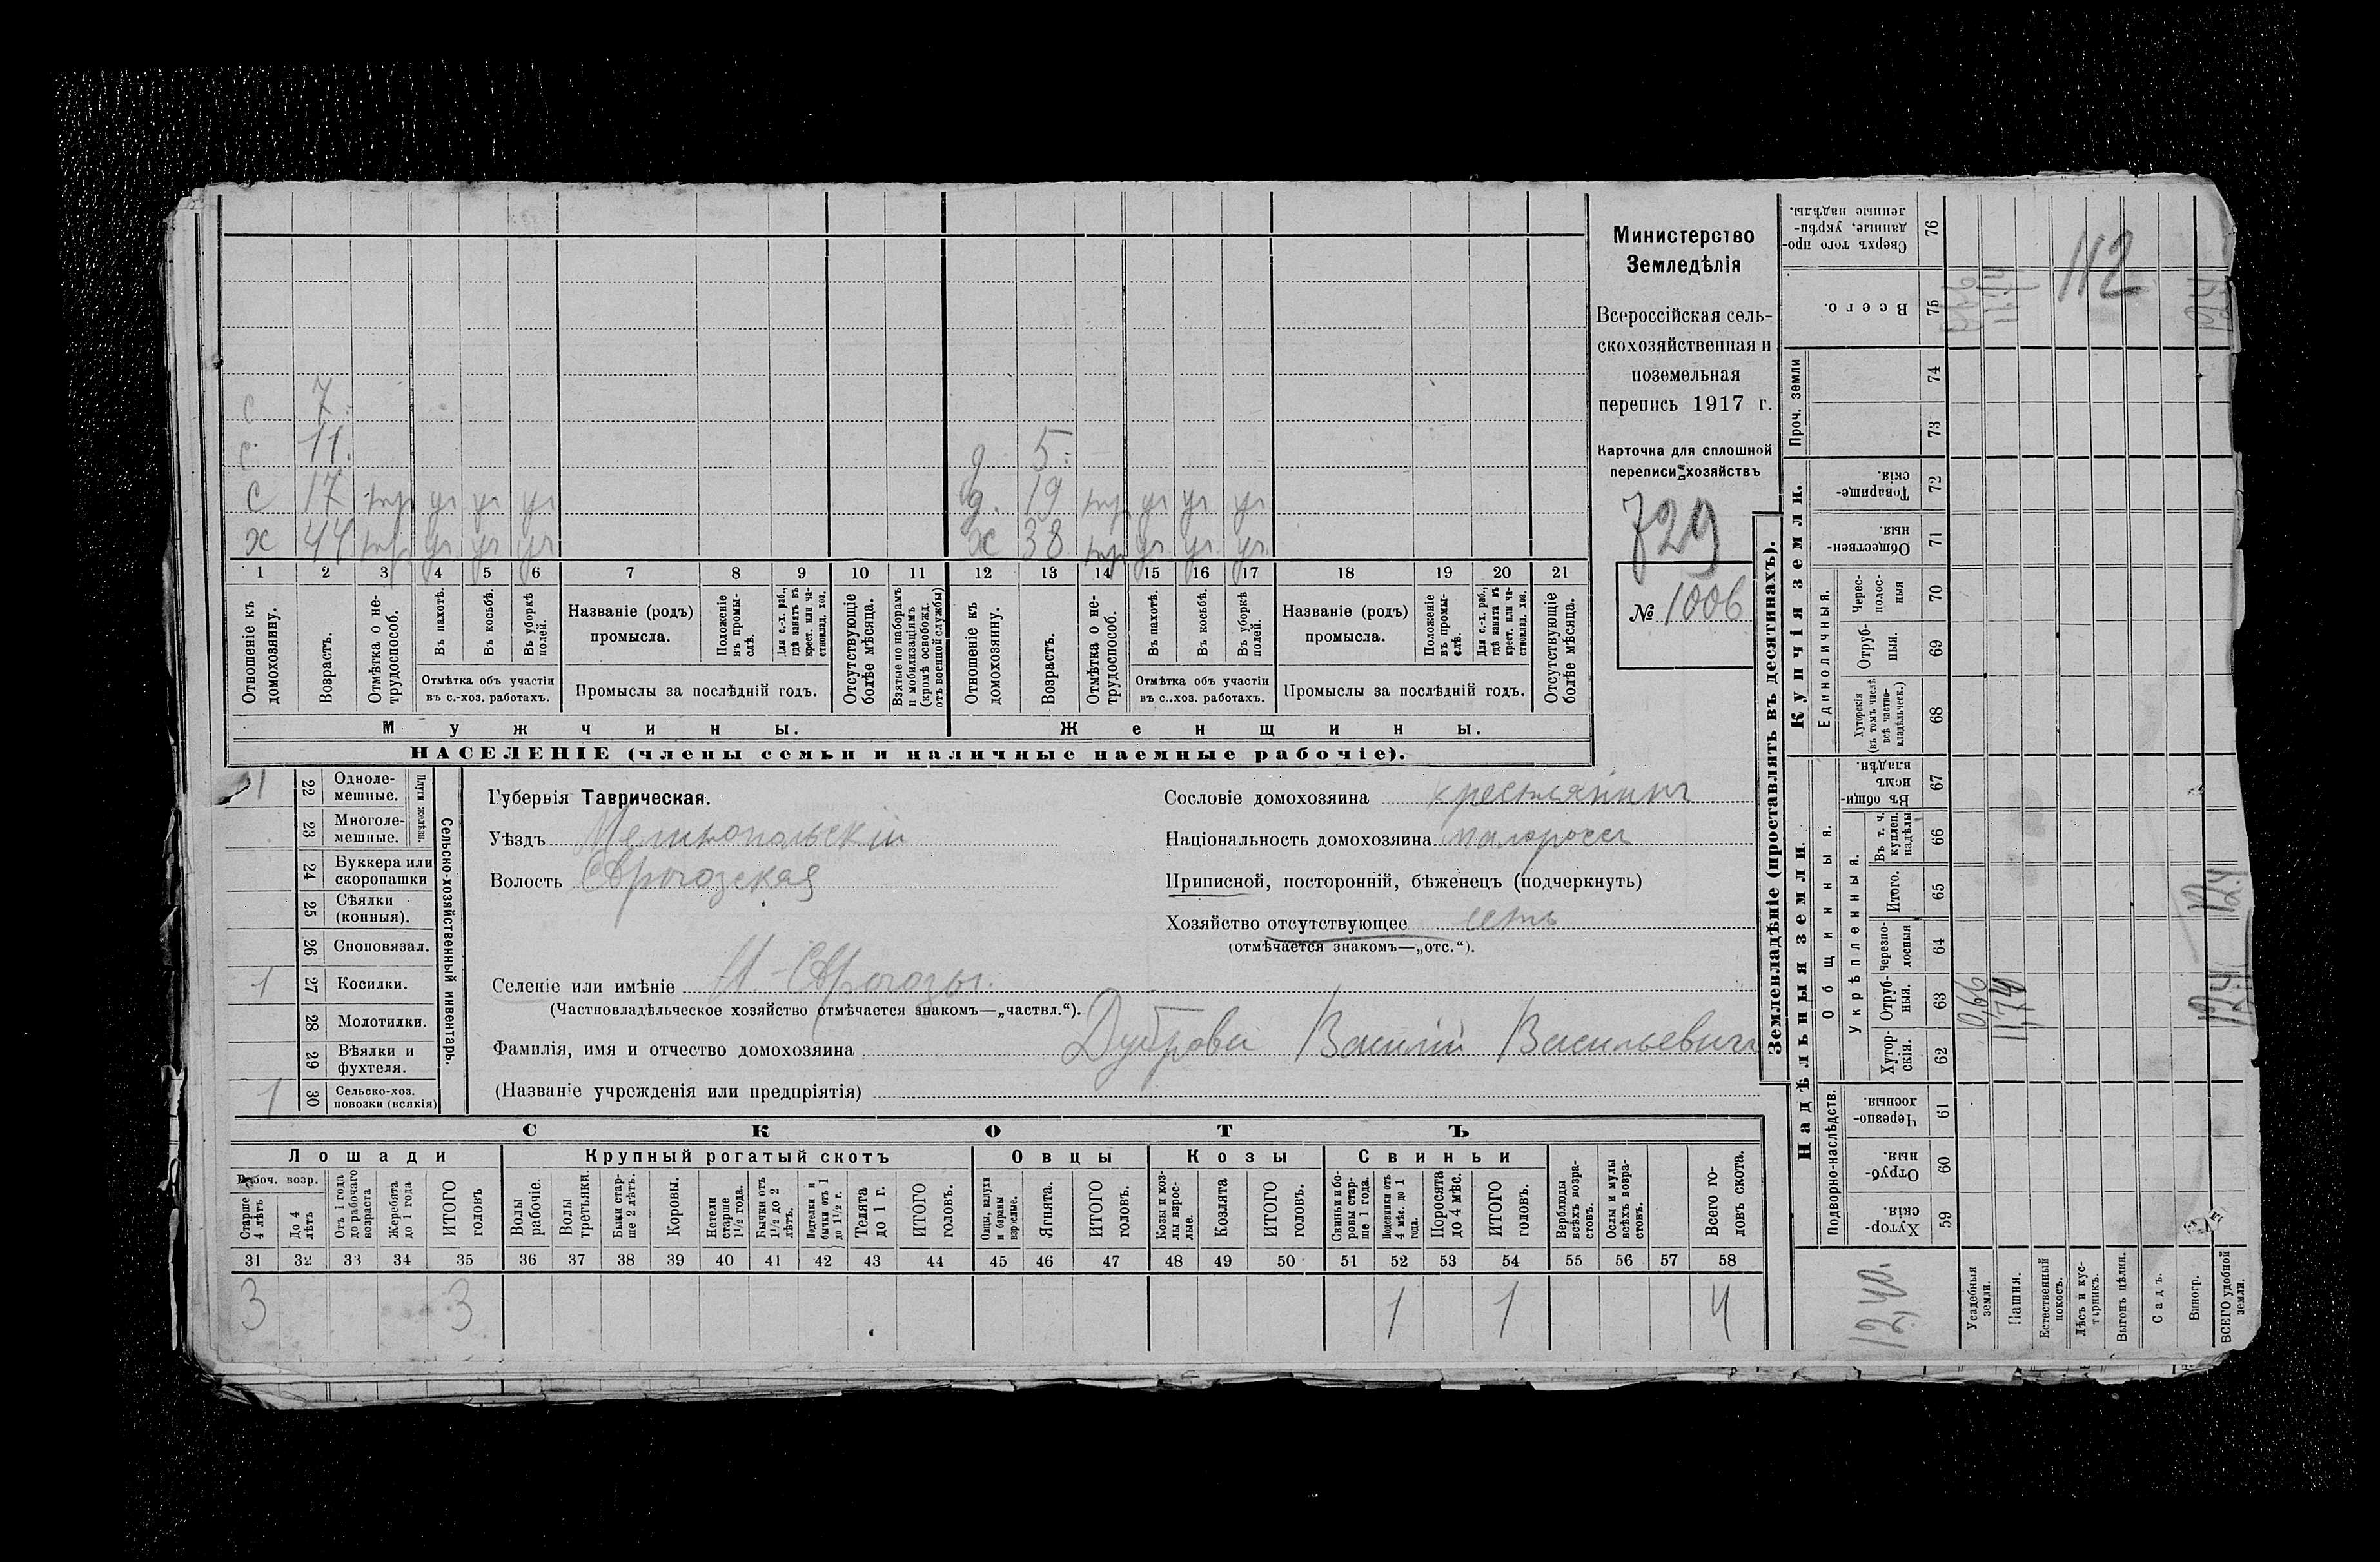 с 7
с 11. д 5.
с 17 тр уч уч уч д. 19 тр уч уч уч
х 44 тр уч уч уч х 38 тр уч уч уч
1 2 3 4 5 6 7 8 9 10 11 12 13 14 15 16 17 18 19 20 21
Отношеніе къ домохозяину.
Возрастъ.
Отмѣтка о не-трудоспособ.
Въ пахотѣ.
Въ косьбѣ.
Въ уборкѣ полей.
Отмѣтка объ участіи
въ с.-хоз. работахъ.
Названіе (родъ)
промысла.
Положеніе въ промы-слѣ.
Для с.-х. раб., гдѣ занятъ въ крест. или ча-стновлад. хоз.
Промыслы за послѣдній годъ.
Отсутствующіе болѣе мѣсяца.
Взятые по наборамъ и мобилизаціямъ (кромѣ освобожд. отъ военной службы)
Отношеніе къ домохозяину.
Возрастъ.
Отмѣтка о не-трудоспособ.
Въ пахотѣ.
Въ косьбѣ.
Въ уборкѣ полей.
Отмѣтка объ участіи
въ с..хоз. работахъ.
Названіе (родъ)
промысла.
Положеніе въ промы-слѣ.
Для с.-х. раб., гдѣ занята въ крест. или ча-стновлад. хоз.
Промыслы за послѣдній годъ.
Отсутствующіе болѣе мѣсяца.
Мужчины. Женщины.
НАСЕЛЕНІЕ (члены семьи и наличные наемные рабочіе).
Министерство
Земледѣлія
Всероссійская сель-
скохозяйственная и
поземельная
перепись 1917 г.
Карточка для сплошной
переписи хозяйствъ
729
№ 1006
1 22 Одноле-мешные.
23 Многоле-мешные.
Плуги желѣзн.
24 Буккера или скоропашки
25 Сѣялки (конныя).
26 Сноповязал.
1 27 Косилки.
28 Молотилки.
29 Вѣялки и фухтеля.
1 30 Сельско-хоз. повозки (всякія)
Сельско-хозяйственный инвентарь.
Губернія Таврическая.
Уѣздъ Мелитопольскій
Волость
Селеніе или имѣніе
(Частновладѣльческое хозяйство отмѣчается знакомъ—„частвл.“).
Фамилія, имя и отчество домохозяина Дуброва Василій Васильевичъ
(Названіе учрежденія или предпріятія)
Сословіе домохозяина крестьянинъ
Національность домохозяина малороссъ
Приписной, посторонній, бѣженецъ (подчеркнуть)
Хозяйство отсутствующее есть
(отмѣчается знакомъ—„отс.“).
СКОТЪ
Лошади Крупный рогатый скотъ Овцы Козы Свиньи
Рабоч. возр.
Старше 4 лѣтъ
До 4 лѣтъ
Отъ 1 года до рабочаго возраста
Жеребята до 1 года
ИТОГО головъ
Волы рабочіе.
Волы третьяки.
Быки стар-ше 2 лѣтъ.
Коровы.
Нетели старше 1 1/2 года.
Бычки отъ 1 1/2 до 2 лѣтъ.
Подтелки и бычки отъ 1 до 1 1/2 г.
Телята до 1 г.
ИТОГО головъ.
Овцы, валухи и бараны взрослые.
Ягнята.
ИТОГО головъ.
Козы и коз-лы взрос-лые.
Козлята
ИТОГО головъ.
Свиньи и бо-ровы стар-ше 1 года.
Подсвинки отъ 4 мѣс. до 1 года.
Поросята до 4 мѣс.
ИТОГО головъ.
Верблюды всѣхъ возра-стовъ.
Ослы и мулы всѣхъ возра-стовъ.
Всего го-ловъ скота.
31 32 33 34 35 36 37 38 39 40 41 42 43 44 45 46 47 48 49 50 51 52 53 54 55 56 57 58
3 3 1 1 4
Землевладѣніе (проставлять въ десятинахъ).
Надѣльныя земли. Купчія земли.
Подворно-наслѣдств.
Общинныя.
Укрѣпленныя.
Единоличныя.
Проч. земли
Хутор-скія. 59
Отруб-ныя. 60
Черезпо-лосныя. 61
Хутор-скія. 62
Отруб-ныя. 63
Черезпо-лосныя 64
Итого. 65
Въ т. ч. куплен. надѣлы 66
Въ общи-номъ владѣн. 67
Хуторскія (въ томъ числѣ всѣ частно-владѣльческ.) 68
Отруб-ныя. 69
Черес-полос-ныя 70
Обществен-ныя. 71
Товарище-скія. 72
73
74
Всего. 75
Сверхъ того про-данные, укрѣп-ленные надѣлы. 76
12,40.
Усадебныя земли. 0,66
Пашня. 11,74
Естественный покосъ.
Лѣсъ и кус-тарникъ.
Выгонъ цѣлин.
Садъ.
Виногр.
ВСЕГО удобной земли. 12,4 12,4
112